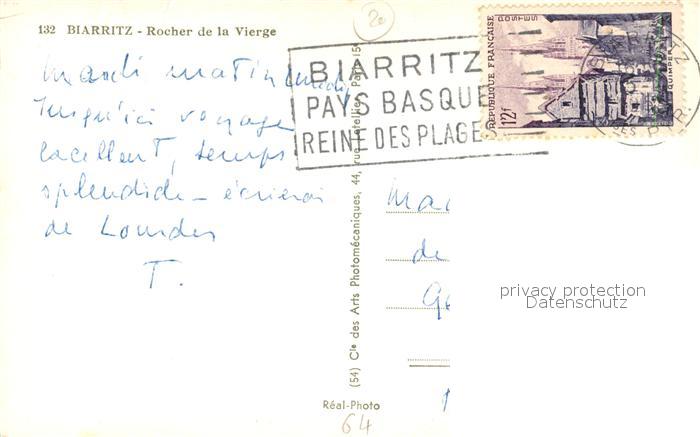 132 BIARRITZ - Rocher de la Vierge
mardi matin
Jusqu'ici voyage
excellent, temps
splendide - écrirai
de Lourdes
T.
BIARRITZ
PAYS BASQUE
REINE DES PLAGES
RÉPUBLIQUE FRANÇAISE
POSTES
12f
QUIMPER
(54) Cie des Arts Photomécaniques, 44, rue Letellier, Paris 15
Réal-Photo
64
Ma
de
Ge
privacy protection
Datenschutz